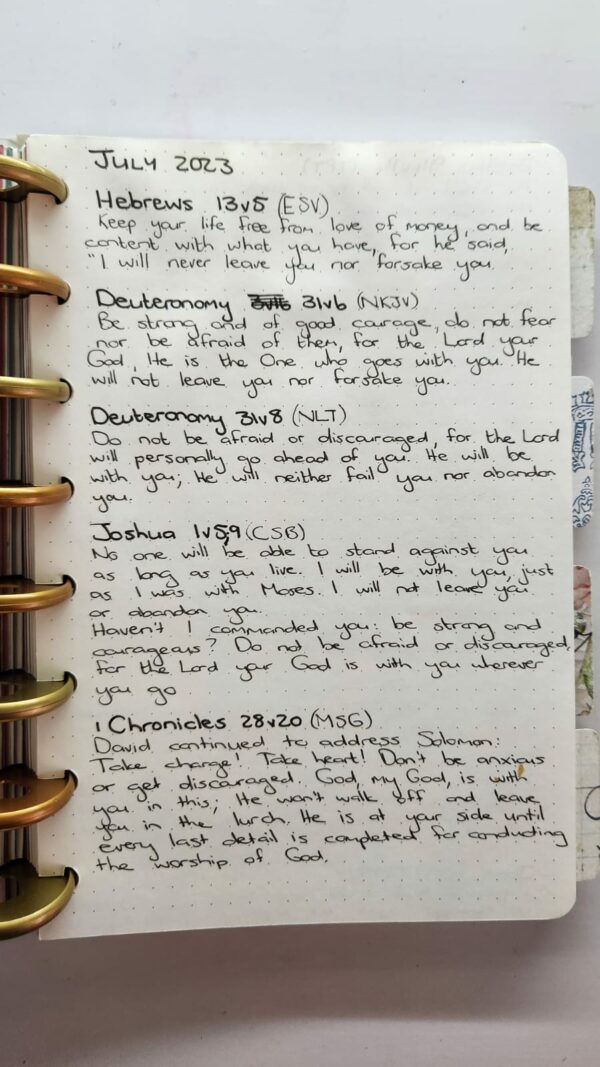 JULY 2023
Hebrews 13v5 (ESV)
Keep your life free from love of money, and be
content with what you have, for he said,
"I will never leave you nor forsake you.
Deuteronomy 31v6 (NKJV)
Be strong and of good courage, do not fear
nor be afraid of them, for the Lord your
God, He is the One who goes with you. He
will not leave you nor forsake you.
Deuteronomy 31v8 (NLT)
Do not be afraid or discouraged, for the Lord
will personally go ahead of you. He will be
with you; He will neither fail you nor abandon
you.
Joshua 1v5,9 (CSB)
No one will be able to stand against you
as long as you live. I will be with you, just
as I was with Moses. I will not leave you
or abandon you.
Haven't I commanded you: be strong and
courageous? Do not be afraid or discouraged,
for the Lord your God is with you wherever
you go.
1 Chronicles 28v20 (MSG)
David continued to address Solomon:
Take charge! Take heart! Don't be anxious
or get discouraged. God, my God, is with
you in this; He won't walk off and leave
you in the lurch. He is at your side until
every last detail is completed for conducting
the worship of God.